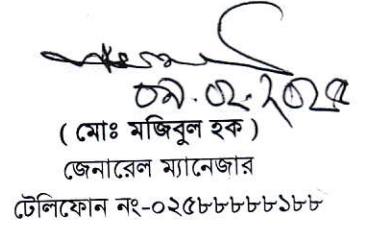 ০৯.০২.২০২৫
( মোঃ মজিবুল হক )
জেনারেল ম্যানেজার
টেলিফোন নং-০২৫৮৮৮৮৮১৮৮